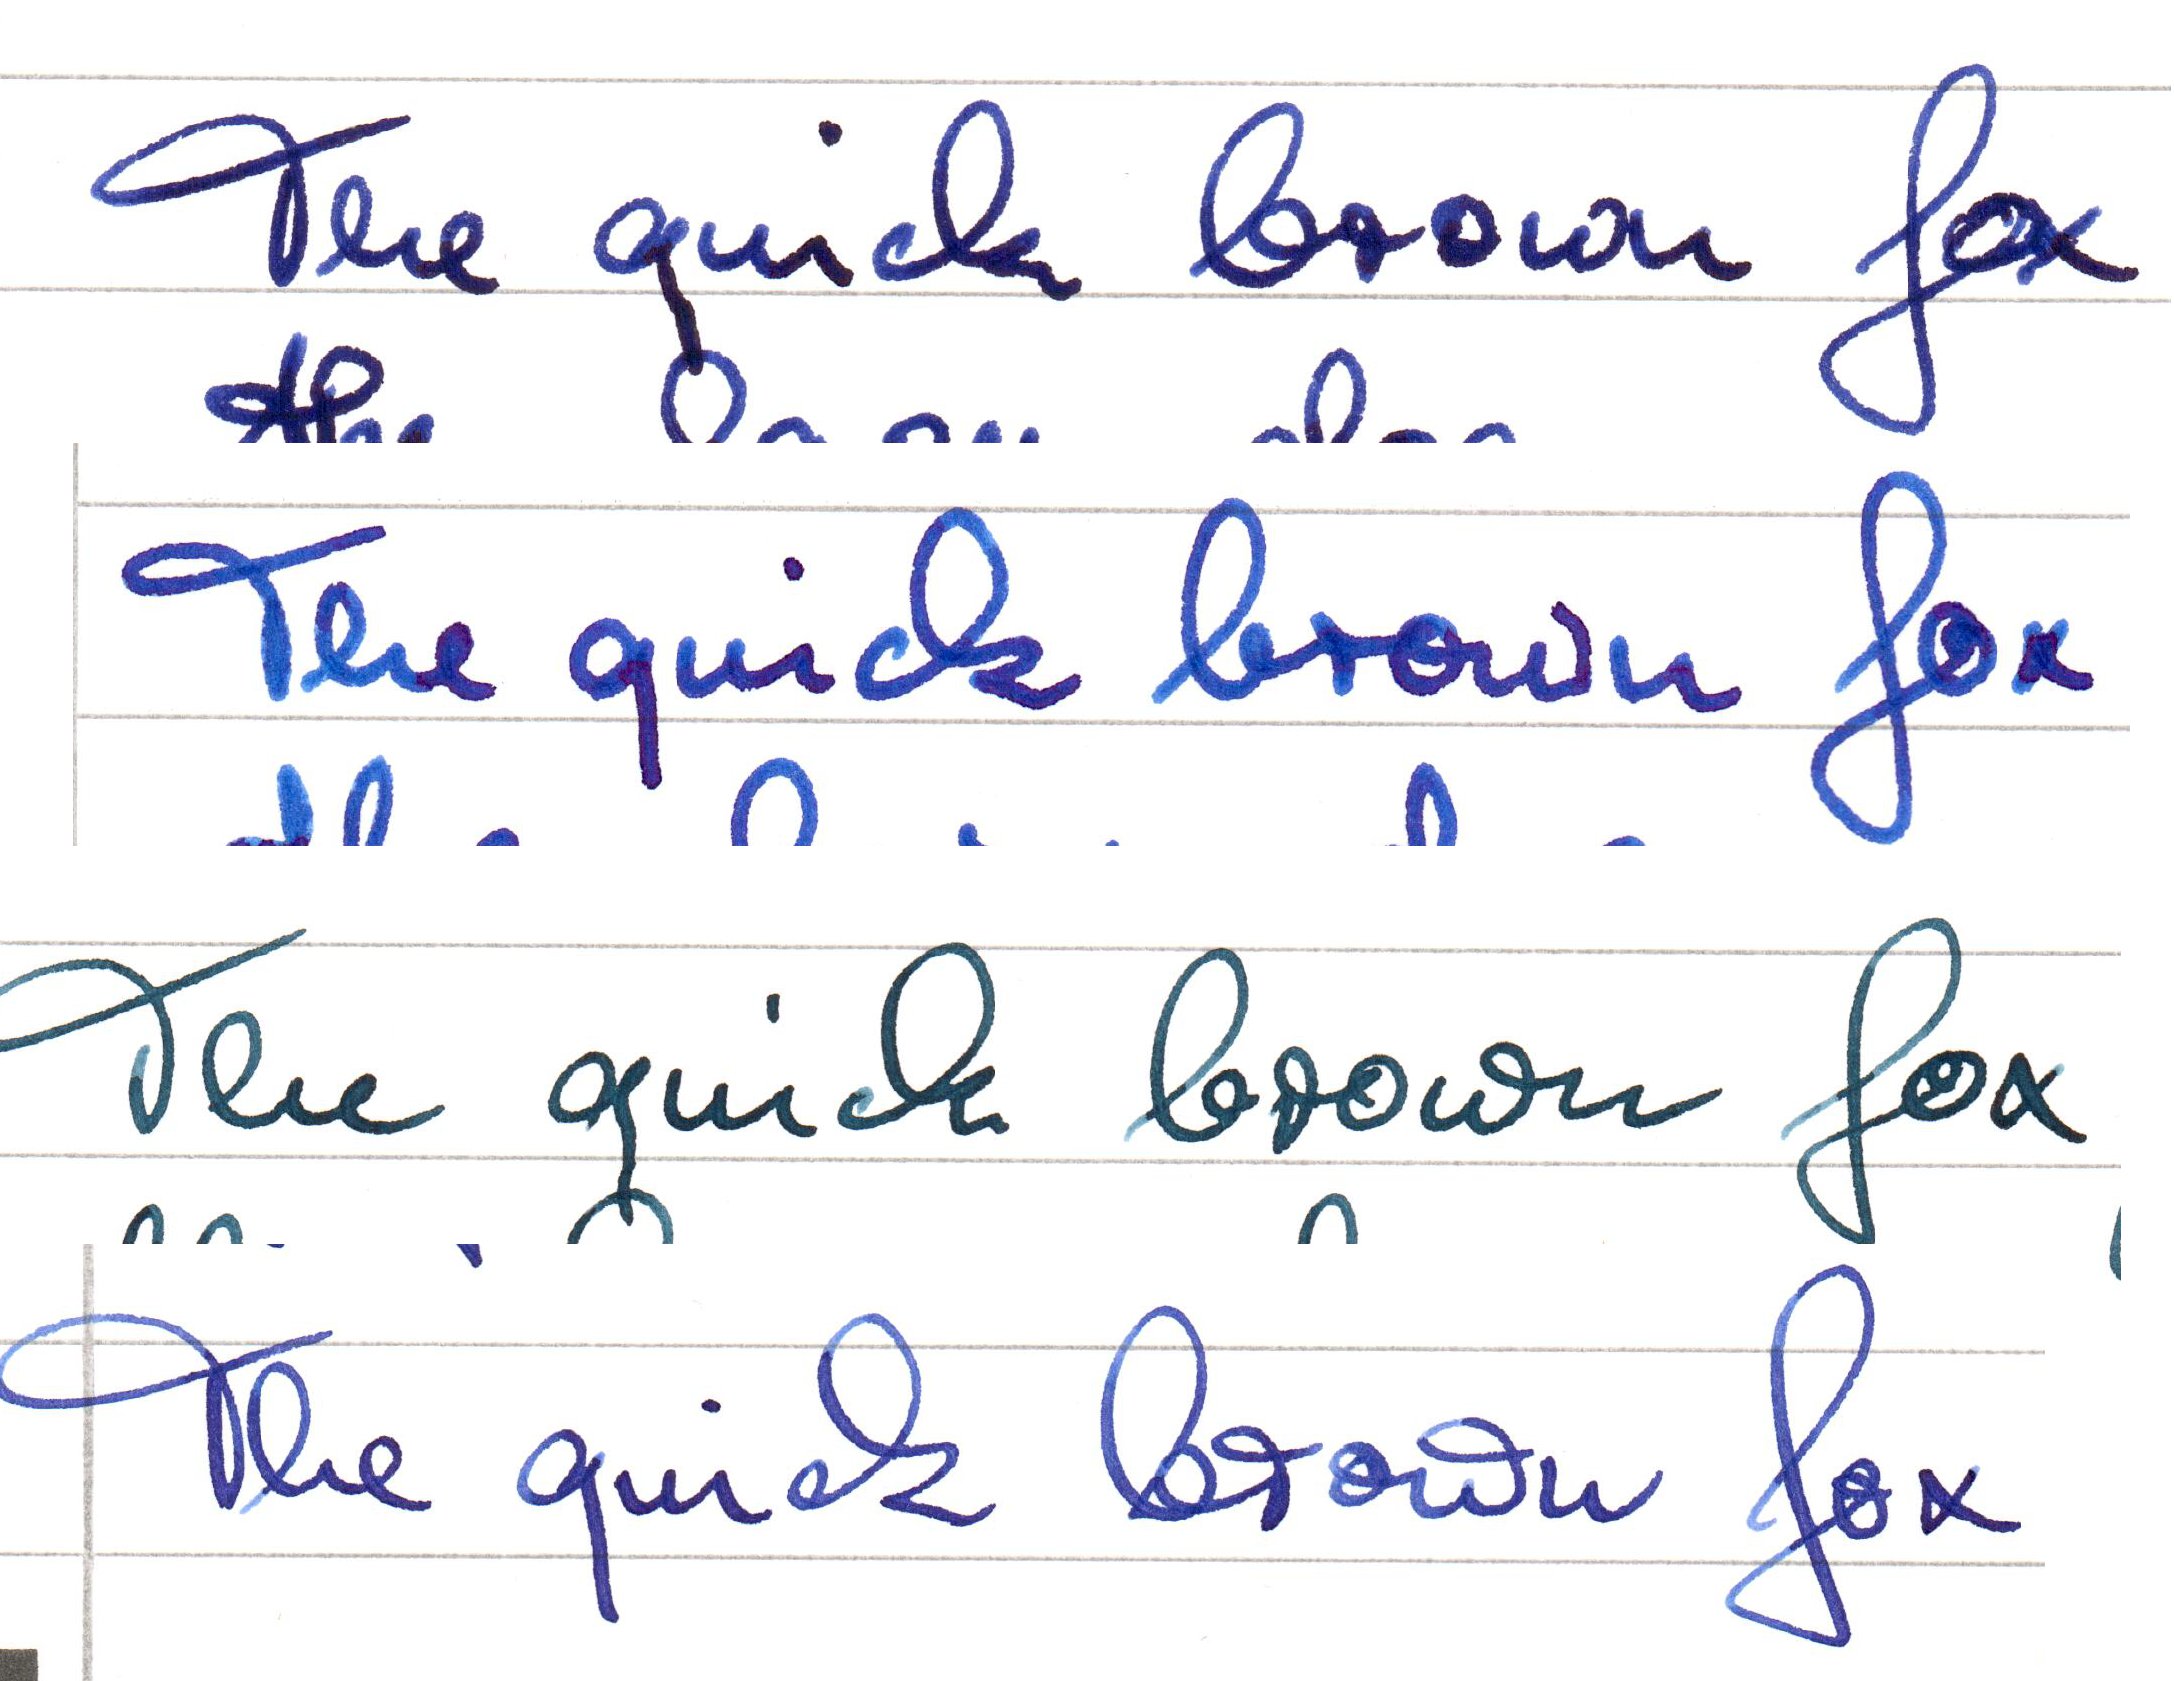 The quick brown fox
The quick brown fox
The quick brown fox
The quick brown fox